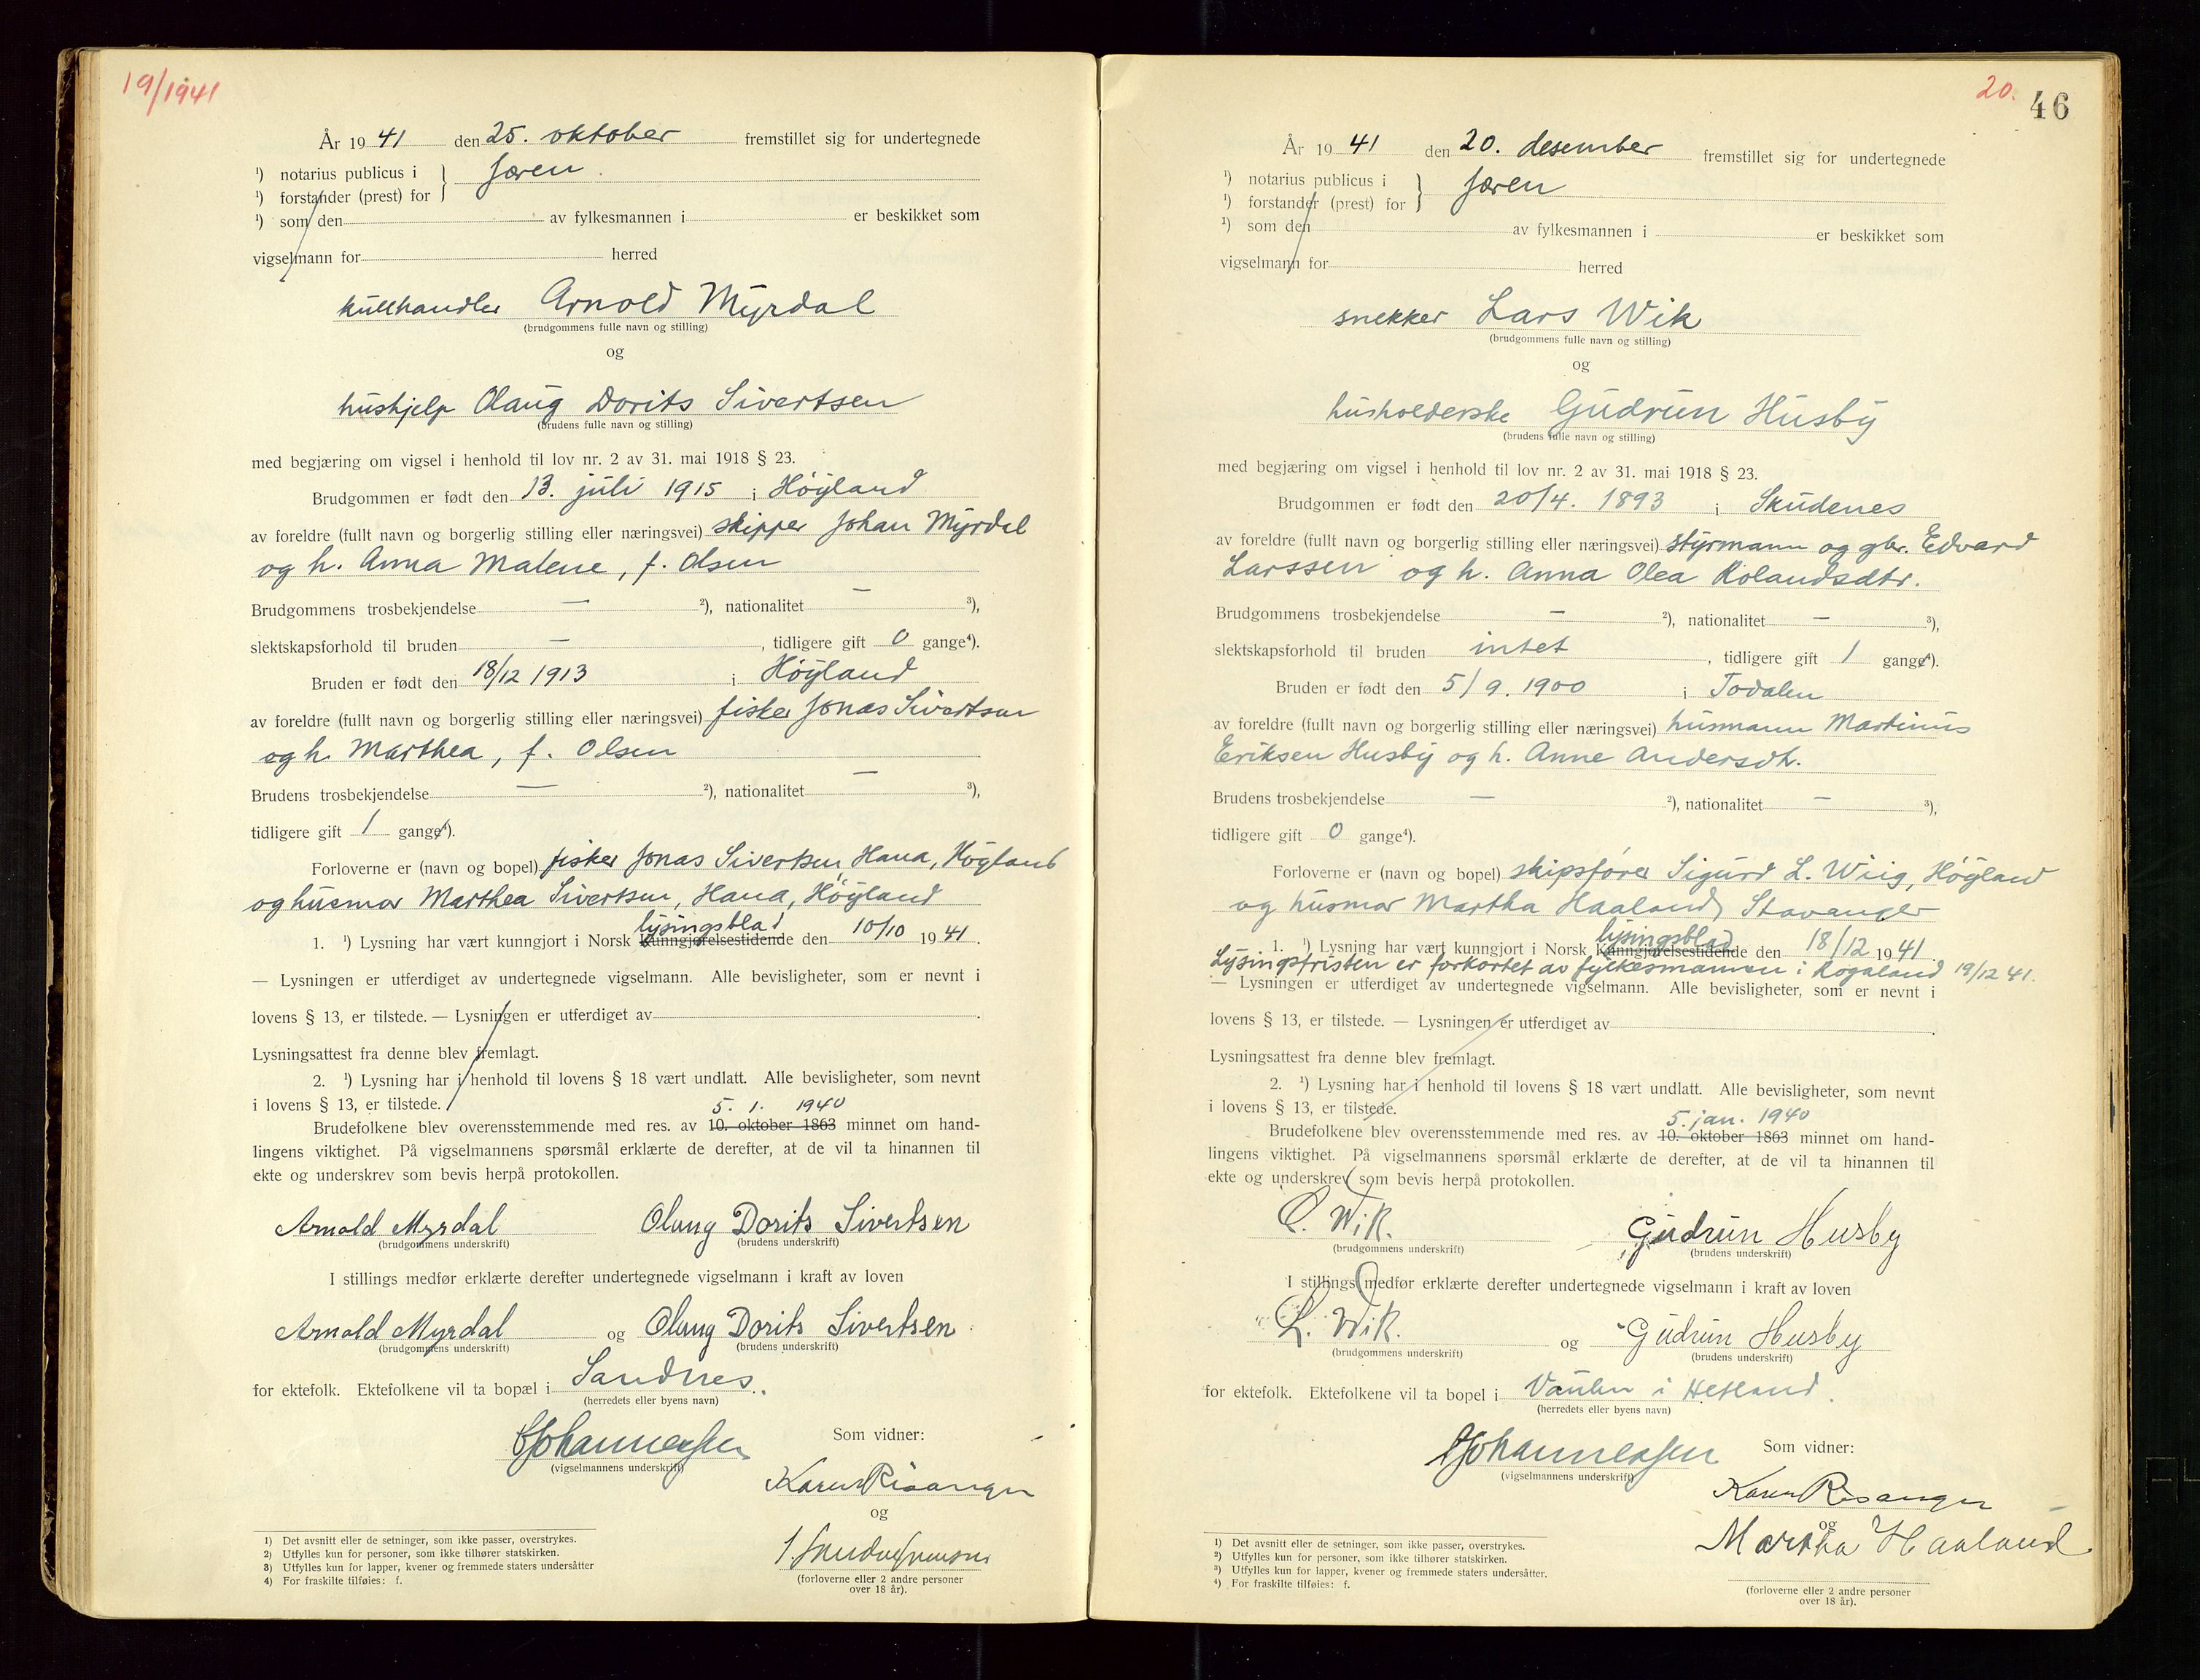 19/1941
År 1941 den 25. oktober fremstillet sig for undertegnede
¹) notarius publicus i } Jæren.
¹) forstander (prest) for
¹) som den av fylkesmannen i er beskikket som
vigselmann for herred
kullhandler Arnold Myrdal
(brudgommens fulle navn og stilling)
og
hushjelp Olaug Dorits Sivertsen
(brudens fulle navn og stilling)
med begjæring om vigsel i henhold til lov nr. 2 av 31. mai 1918 § 23.
Brudgommen er født den 13. juli 1915 i Høyland
av foreldre (fullt navn og borgerlig stilling eller næringsvei) skipper Johan Myrdal
og h. Anna Malene, f. Olsen
Brudgommens trosbekjendelse — ²), nationalitet — ³),
slektskapsforhold til bruden —, tidligere gift 0 gange⁴).
Bruden er født den 18/12 1913 i Høyland
av foreldre (fullt navn og borgerlig stilling eller næringsvei) fisker Jonas Sivertsen
og h. Marthea, f. Olsen
Brudens trosbekjendelse — ²), nationalitet — ³),
tidligere gift 1 gange⁴).
Forloverne er (navn og bopel) fisker Jonas Sivertsen, Hana, Høyland
og husmor Marthea Sivertsen, Hana, Høyland
lysingsblad
1. ¹) Lysning har vært kunngjort i Norsk Kunngjørelsestidende den 10/10 1941.
— Lysningen er utferdiget av undertegnede vigselmann. Alle bevisligheter, som er nevnt i
lovens § 13, er tilstede. — Lysningen er utferdiget av .
Lysningsattest fra denne blev fremlagt.
2. ¹) Lysning har i henhold til lovens § 18 vært undlatt. Alle bevisligheter, som nevnt
i lovens § 13, er tilstede.
5. 1. 1940
Brudefolkene blev overensstemmende med res. av 10. oktober 1863 minnet om hand-
lingens viktighet. På vigselmannens spørsmål erklærte de derefter, at de vil ta hinannen til
ekte og underskrev som bevis herpå protokollen.
Arnold Myrdal Olaug Dorits Sivertsen
(brudgommens underskrift) (brudens underskrift)
I stillings medfør erklærte derefter undertegnede vigselmann i kraft av loven
Arnold Myrdal og Olaug Dorits Sivertsen
(brudgommens underskrift) (brudens underskrift)
for ektefolk. Ektefolkene vil ta bopæl i Sandnes.
(herredets eller byens navn)
Johannessen Som vidner:
(vigselmannens underskrift)
Karen Risanger
og
(forloverne eller 2 andre personer
over 18 år).
1) Det avsnitt eller de setninger, som ikke passer, overstrykes.
2) Utfylles kun for personer, som ikke tilhører statskirken.
3) Utfylles kun for lapper, kvener og fremmede staters undersåtter
4) For fraskilte tilføies: f.
20. 46
År 1941 den 20. desember fremstillet sig for undertegnede
¹) notarius publicus i } Jæren
¹) forstander (prest) for
¹) som den av fylkesmannen i er beskikket som
vigselmann for herred
snekker Lars Wik
(brudgommens fulle navn og stilling)
og
husholderske Gudrun Husby
(brudens fulle navn og stilling)
med begjæring om vigsel i henhold til lov nr. 2 av 31. mai 1918 § 23.
Brudgommen er født den 20/4. 1893 i Skudenes
av foreldre (fullt navn og borgerlig stilling eller næringsvei) styrmann og gbr. Edvard
Larssen og h. Anna Olea Rolandsdtr.
Brudgommens trosbekjendelse — ²), nationalitet — ³),
slektskapsforhold til bruden intet, tidligere gift 1 gange⁴).
Bruden er født den 5/9. 1900 i Todalen
av foreldre (fullt navn og borgerlig stilling eller næringsvei) husmann Martinus
Eriksen Husby og h. Anne Andersdtr.
Brudens trosbekjendelse — ²), nationalitet — ³),
tidligere gift 0 gange⁴).
Forloverne er (navn og bopel) skipsfører Sigurd L. Wiig, Høyland
og husmor Martha Haaland, Stavanger
lysingsblad
1. ¹) Lysning har vært kunngjort i Norsk Kunngjørelsestidende den 18/12 1941.
Lysingsfristen er forkortet av fylkesmannen i Rogaland 19/12 41.
— Lysningen er utferdiget av undertegnede vigselmann. Alle bevisligheter, som er nevnt i
lovens § 13, er tilstede. — Lysningen er utferdiget av .
Lysningsattest fra denne blev fremlagt.
2. ¹) Lysning har i henhold til lovens § 18 vært undlatt. Alle bevisligheter, som nevnt
i lovens § 13, er tilstede.
5. jan. 1940
Brudefolkene blev overensstemmende med res. av 10. oktober 1863 minnet om hand-
lingens viktighet. På vigselmannens spørsmål erklærte de derefter, at de vil ta hinannen til
ekte og underskrev som bevis herpå protokollen.
L. Wik. Gudrun Husby
(brudgommens underskrift) (brudens underskrift)
I stillings medfør erklærte derefter undertegnede vigselmann i kraft av loven
L. Wik. og Gudrun Husby
(brudgommens underskrift) (brudens underskrift)
for ektefolk. Ektefolkene vil ta bopel i Vaulen i Hetland.
(herredets eller byens navn)
Johannessen Som vidner:
(vigselmannens underskrift)
Karen Risanger
og
Martha Haaland
(forloverne eller 2 andre personer
over 18 år).
1) Det avsnitt eller de setninger, som ikke passer, overstrykes.
2) Utfylles kun for personer, som ikke tilhører statskirken.
3) Utfylles kun for lapper, kvener og fremmede staters undersåtter.
4) For fraskilte tilføies: f.